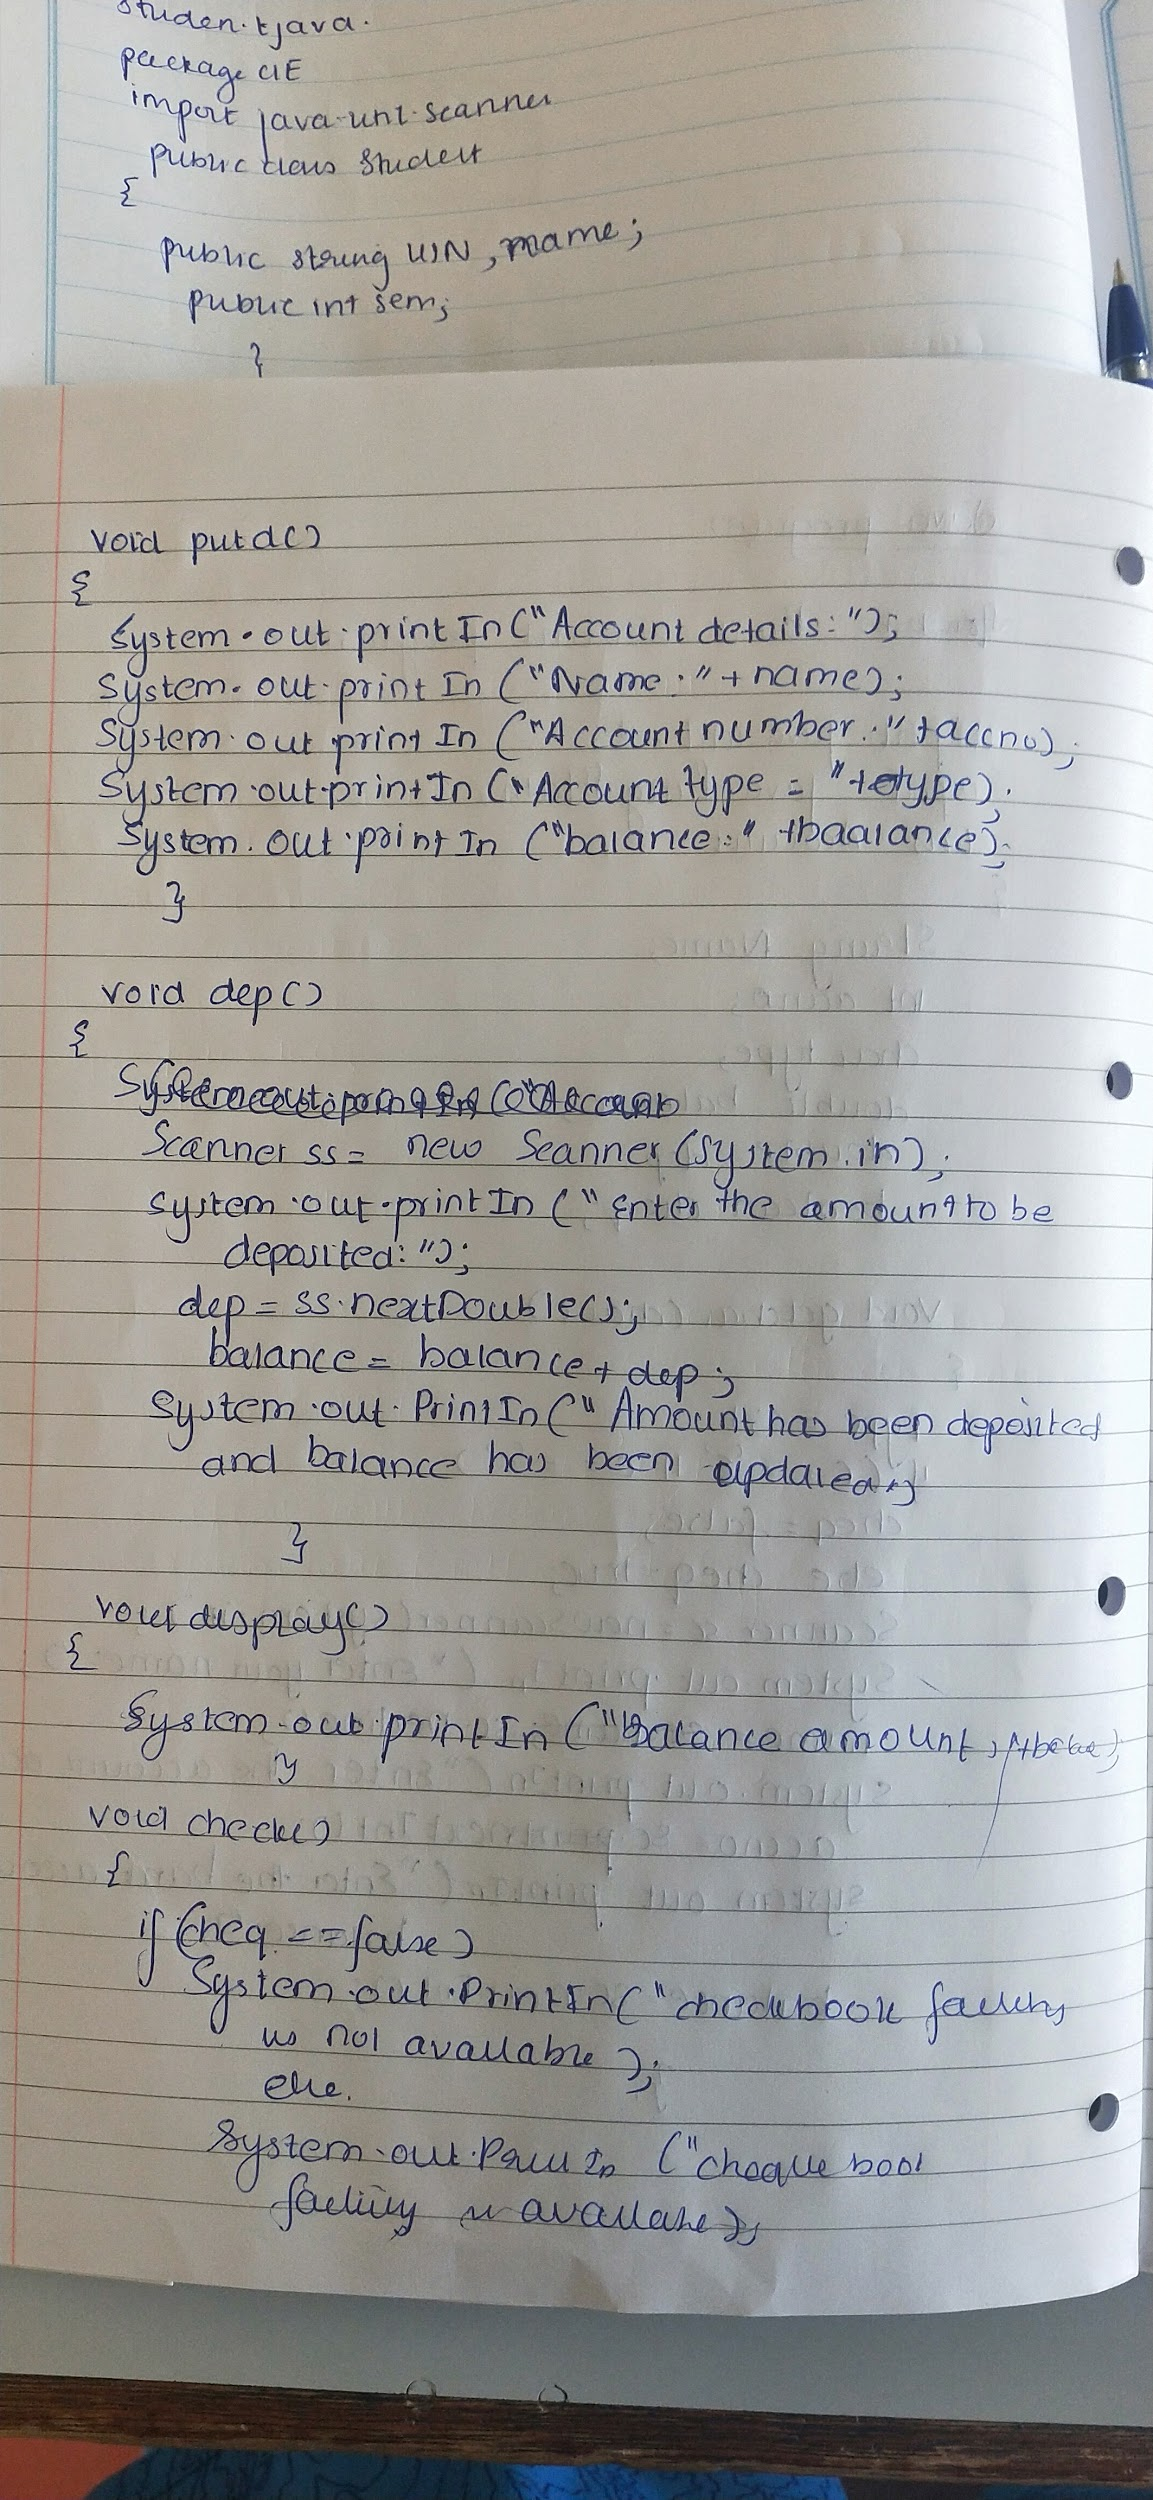 studen.tjava.
package CIE
import java.util.scanner
public class Student
{
public string USN, name;
public int sem;
}
void putd()
{
System.out.printIn("Account details:");
System.out.printIn ("Name:"+name);
System.out printIn ("Account number:"+accno);
System.out.printIn ("Account type = "+ctype);
System.out.printIn ("balance:" +baalance);
}
void dep()
{
Scanner ss = new Scanner (System.in);
system.out.printIn (" Enter the amount to be
deposited:");
dep = ss.nextDouble();
balance = balance + dep;
System.out.PrintIn(" Amount has been deposited
and balance has been updated);
}
void display()
{
System.out.printIn ("Balance amount,
}
void check()
{
if (cheq == false)
System.out.PrintIn("checkbook facility
is not available );
else.
System.out.PrintIn ("cheque book
facility is available);